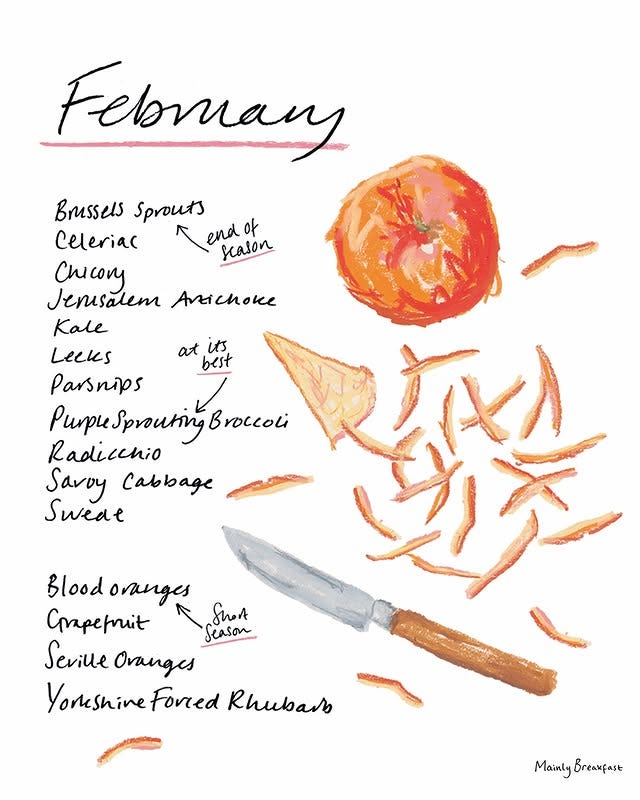 February
Brussels Sprouts
end of
season
Celeriac
Chicory
Jerusalem Artichoke
Kale
Leeks
at its
best
Parsnips
Purple Sprouting Broccoli
Radicchio
Savoy Cabbage
Swede
Blood oranges
Short
season
Grapefruit
Seville Oranges
Yorkshire Forced Rhubarb
Mainly Breakfast